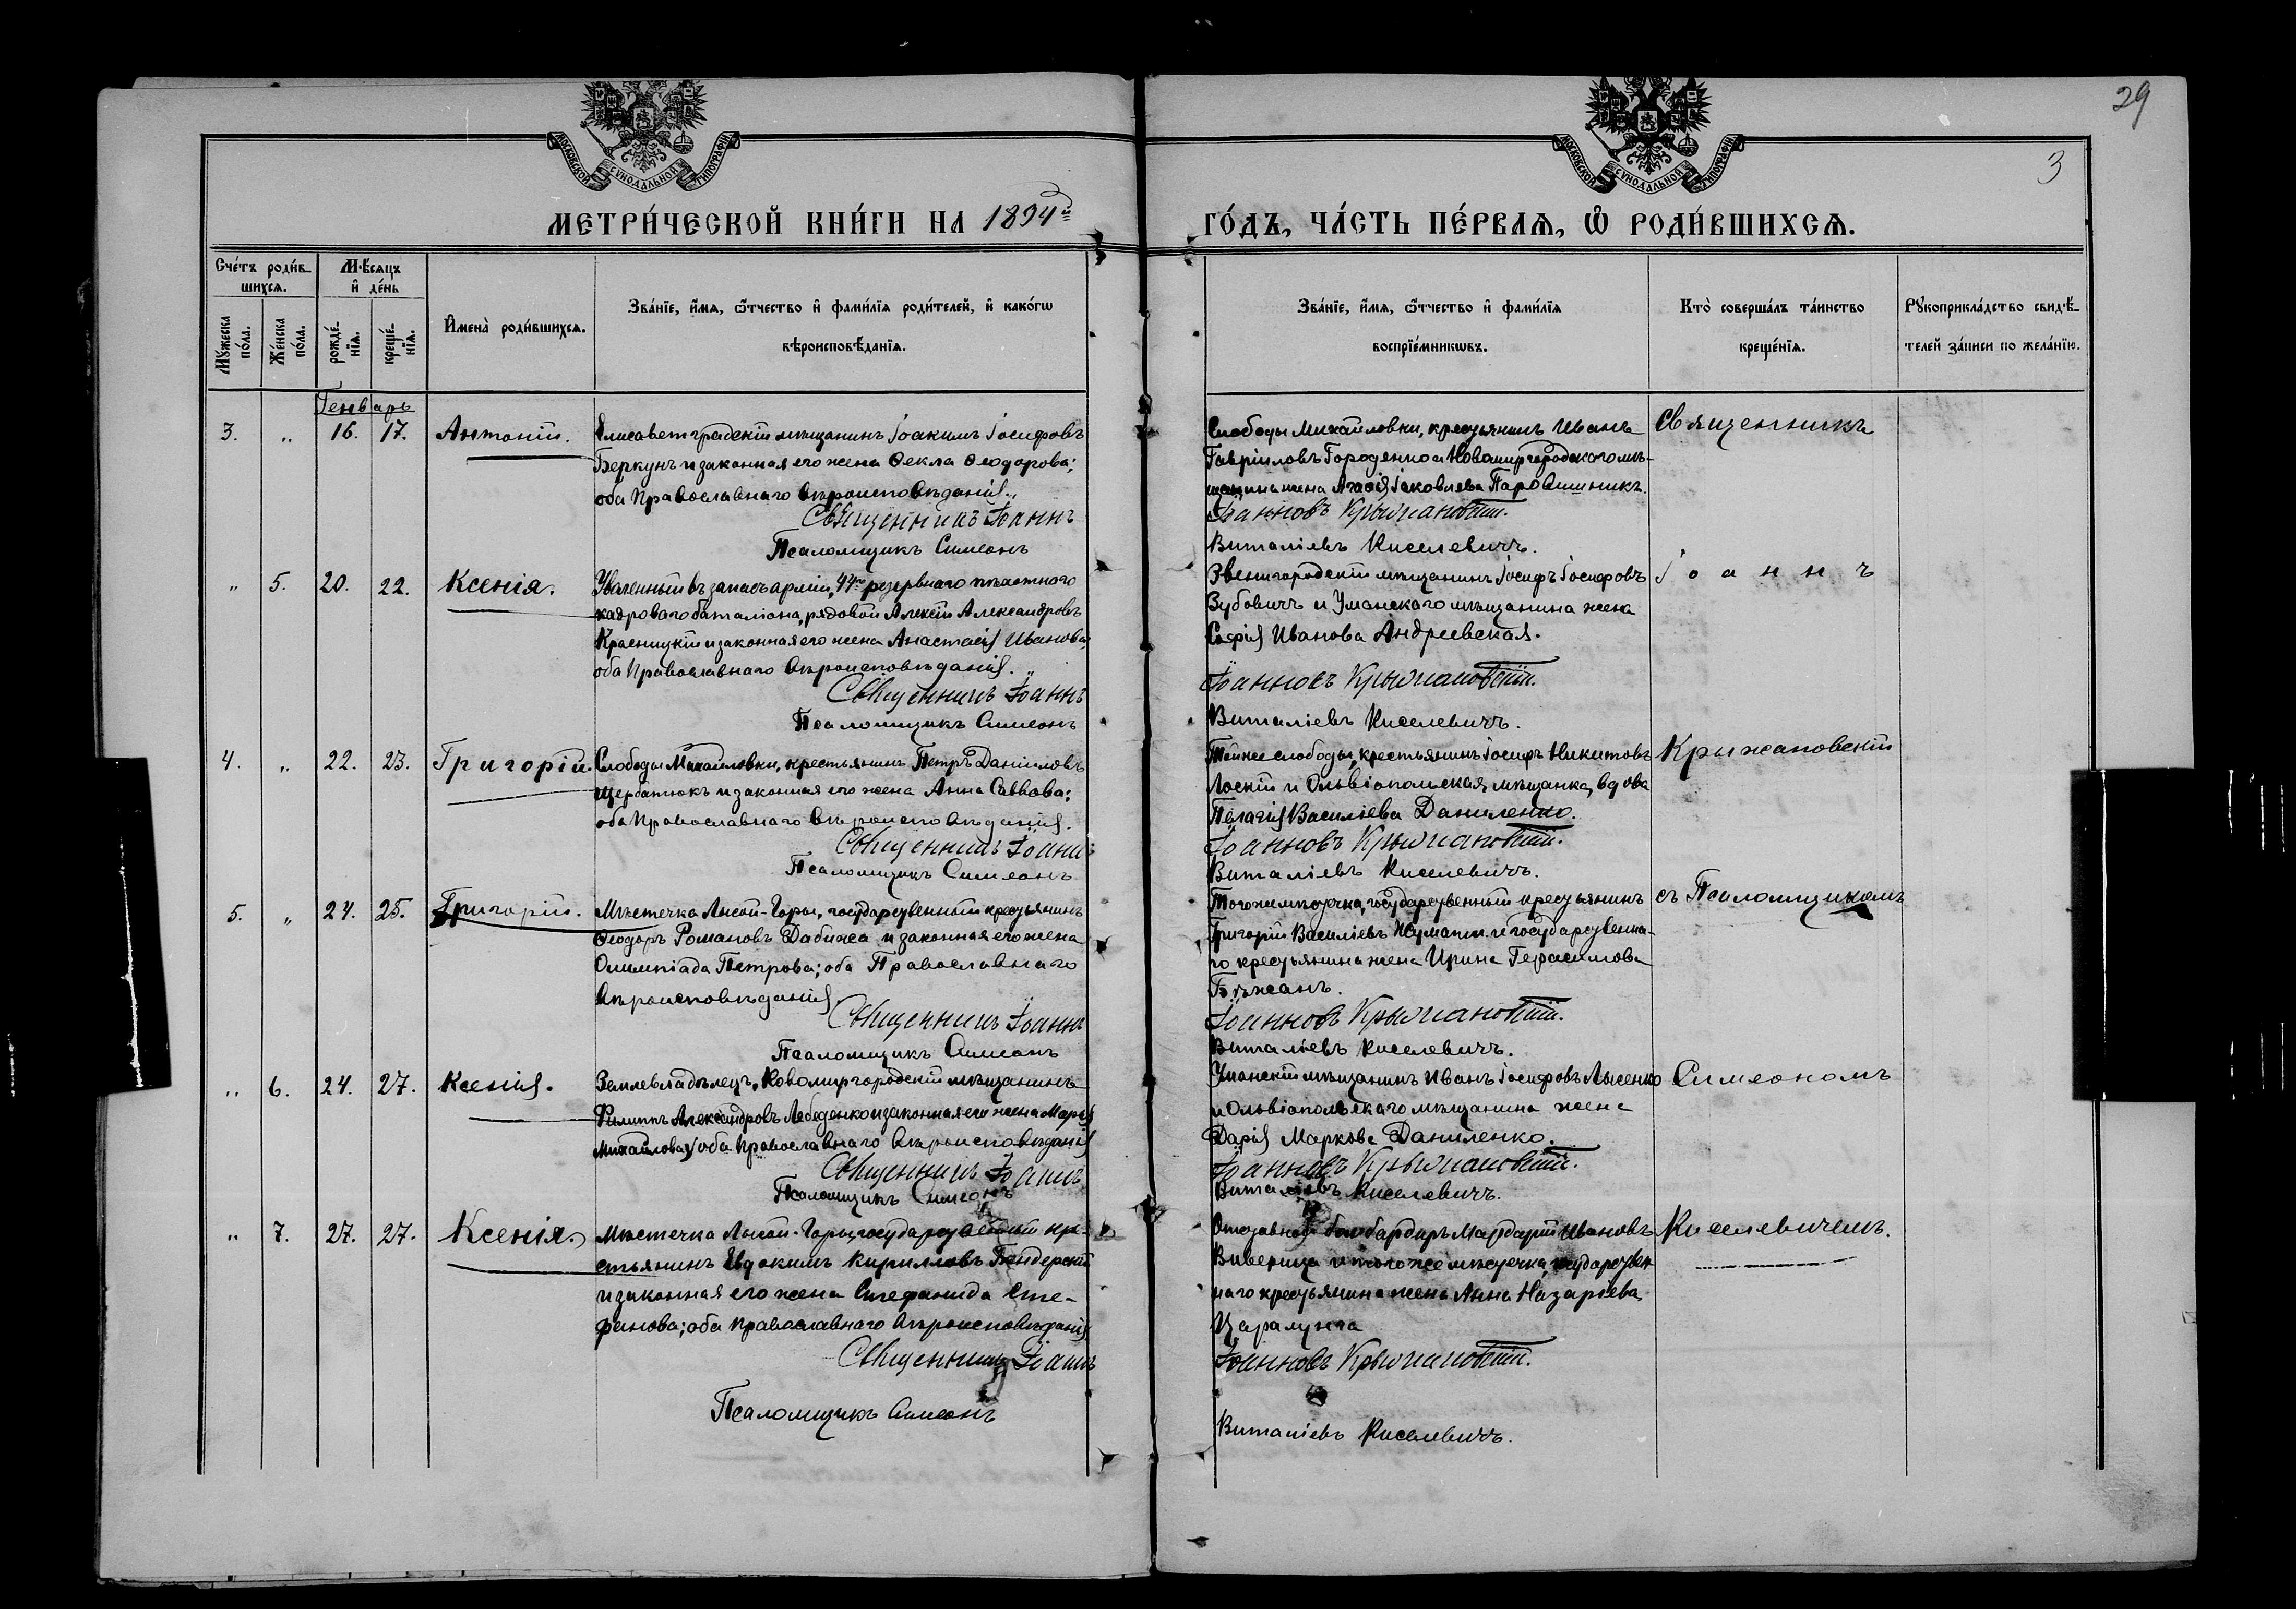 29
3
МОСКОВСКОЙ СѴНОДАЛЬНОЙ ТИПОГРАФІИ
МОСКОВСКОЙ СѴНОДАЛЬНОЙ ТИПОГРАФІИ
МЕТРИ́ЧЕСКОЙ КНИ́ГИ НА 1894й
ГО́ДЪ, ЧА́СТЬ ПЕ́РВАѦ, Ѡ҆ РОДИ́ВШИХСѦ.
Сче́тъ роди́в-
шихсѧ.
Мѣ́сѧцъ
и҆ де́нь
Мꙋ́жеска
по́ла.
Же́нска
по́ла.
рожде́-
нїѧ.
креще́-
нїѧ.
И҆мена̀ роди́вшихсѧ.
Зва́нїе, и҆́мѧ, ѻ҆́тчество и҆ фами́лїѧ роди́телей, и҆ како́гѡ
вѣроисповѣ́данїѧ.
Зва́нїе, и҆́мѧ, ѻ҆́тчество и҆ фами́лїѧ
воспрїе́мникѡвъ.
Кто̀ соверша́лъ та́инство
креще́нїѧ.
Рꙋкоприкла́дство свидѣ́-
телей за́писи по жела́нїю.
Генварь
3. „ 16. 17. Антоній. Елисаветградскій мѣщанинъ Іоакимъ Іосифовъ
Беркунъ и законная его жена Ѳекла Ѳеодорова;
оба Православнаго вѣроисповѣданія.
Священникъ Іоаннъ
Псаломщикъ Симеонъ
Слободы Михайловки, крестьянинъ Иванъ
Гавріиловъ Городенко и Новомиргородскаго мѣ-
щанина жена Агафія Іаковлева
Іоанновъ Крыжановскій.
Виталіевъ Киселевичъ.
Священникъ
„ 5. 20. 22. Ксенія. Уволенный въ запасъ арміи, 44го резервнаго пѣхотного
кадроваго баталіона, рядовой Алексій Александровъ
Красницкій и законная его жена Анастасія Иванова;
оба Православнаго вѣроисповѣданія.
Священникъ Іоаннъ
Псаломщикъ Симеонъ
Звенигородскій мѣщанинъ Іосифъ Іосифовъ
Зубовичъ и Уманскаго мѣщанина жена
Софія Иванова Андреевская.
Іоанновъ Крыжановскій.
Виталіевъ Киселевичъ.
Іоаннъ
4. „ 22. 23. Григорій. Слободы Михайловки, крестьянинъ Петръ Даніиловъ
Щербатюкъ и законная его жена Анна Саввова;
оба Православнаго вѣроисповѣданія.
Священникъ Іоаннъ
Псаломщикъ Симеонъ
Той же слободы, крестьянинъ Іосифъ Никитовъ
Лоскій и Ольвіопольская мѣщанка, вдова
Пелагія Василіева Даниленко.
Іоанновъ Крыжановскій.
Виталіевъ Киселевичъ.
Крыжановскій
5. „ 24. 25. Григорій. Мѣстечка Лысой-Горы, государственный крестьянинъ
Ѳеодоръ Романовъ Дабижа и законная его жена
Олимпіада Петрова; оба Православнаго
вѣроисповѣданія
Священникъ Іоаннъ
Псаломщикъ Симеонъ
Того же мѣстечка, государственный крестьянинъ
Григорій Василіевъ и государственна-
го крестьянина жена Ирина Герасимова
Бѣжанъ.
Іоанновъ Крыжановскій.
Витальевъ Киселевичъ.
съ Псаломщикомъ
„ 6. 24. 27. Ксенія. Землевладѣлецъ, Новомиргородскій мѣщанинъ
Филиппъ Александровъ Лебеденко и законная его жена Марія
Михайлова; оба Православнаго вѣроисповѣданія
Священникъ Іоаннъ
Псаломщикъ Симеонъ
Уманскій мѣщанинъ Иванъ Іосифовъ Лысенко
и Ольвіопольскаго мѣщанина жена
Дарія Маркова Даниленко.
Іоанновъ Крыжановскій.
Виталіевъ Киселевичъ.
Симеономъ
„ 7. 27. 27. Ксенія. Мѣстечка Лысой-Горы, государственный кре-
стьянинъ Евдокимъ Кирилловъ Бендерскій
и законная его жена Стефанида Сте-
фанова; оба Православнаго вѣроисповѣданія
Священникъ Іоаннъ
Псаломщикъ Симеонъ
Отставной бомбардиръ Мардарій Ивановъ
Виверица и того же мѣстечка, государствен
наго крестьянина жена Анна Назаріева
Царалунга
Іоанновъ Крыжановскій.
Виталіевъ Киселевичъ.
Киселевичемъ.